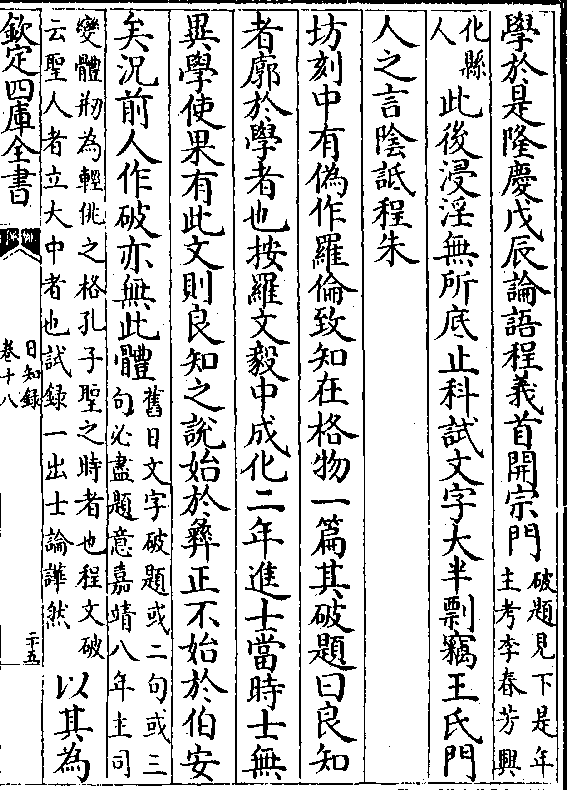 學於是隆慶戊辰論語程義首開宗門破題見下是年
主考李春芳興
化縣
人此後浸淫無所底止科試文字大半剽竊王氏門
人之言陰詆程朱
坊刻中有偽作羅倫致知在格物一篇其破題曰良知
者廓於學者也按羅文毅中成化二年進士當時士無
異學使果有此文則良知之說始於彝正不始於伯安
矣況前人作破亦無此體舊日文字破題或二句或三
句必盡題意嘉靖八年主司
變體刱為輕佻之格孔子聖之時者也程文破
云聖人者立大中者也試錄一出士論譁然以其為
欽定四庫全書
日知錄
卷十八
二十五